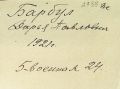 Барбул
Дарья Павловна
1921г.
5. военком 24.